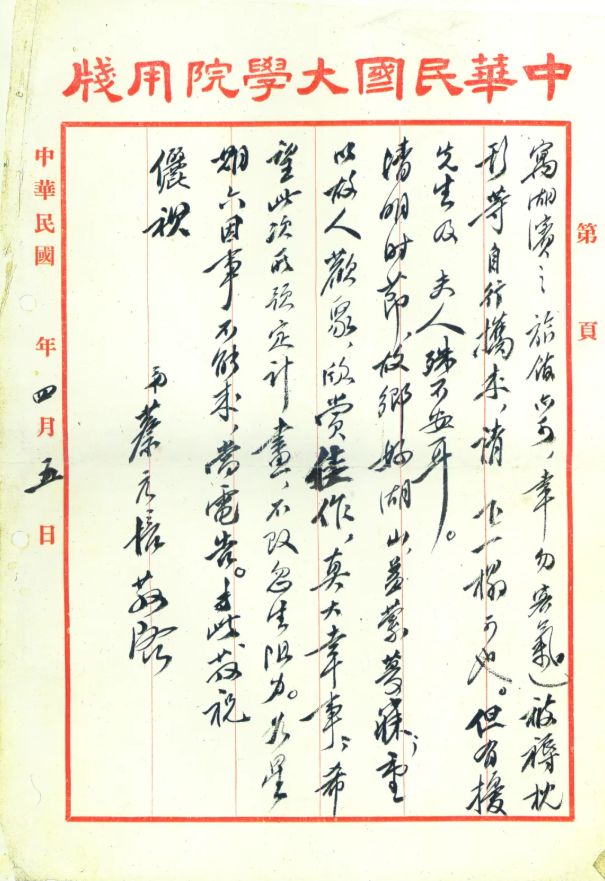 中華民國大學院用牋
第 頁
寓湖濱之旅館亦可,幸勿客氣)被褥枕
等自行攜來,請下一榻可也。但有擾
先生及 夫人殊不安耳。
清明時節,故鄉好湖山,縈夢寐,重
以故人歡聚,欣賞佳作,真大幸事,希
望此次所預定計畫,不致忽生阻力。如星
期六因事不能來,當電告。此敬祝
儷
弟蔡元培敬啓
中華民國 年四月五日